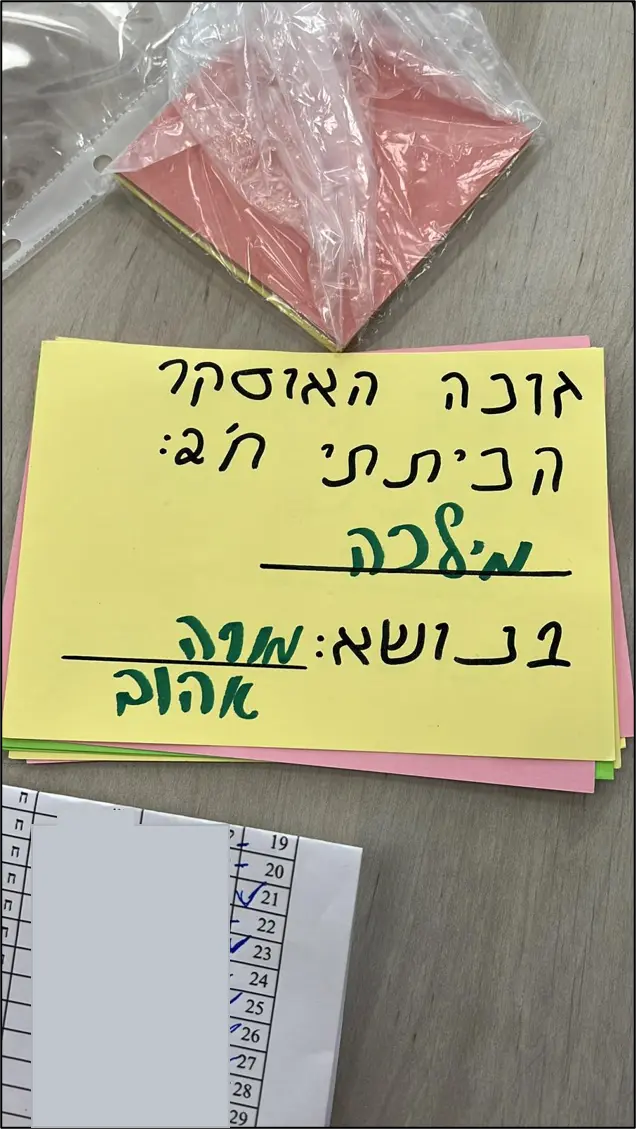 זוכה האוסקר
הכיתתי ח'2:
מילכה
בנושא: מורה
אהוב
19 ח
20 ח
21 ח
22 ח
23 ח
24 ח
25 ח
26
27
28
29